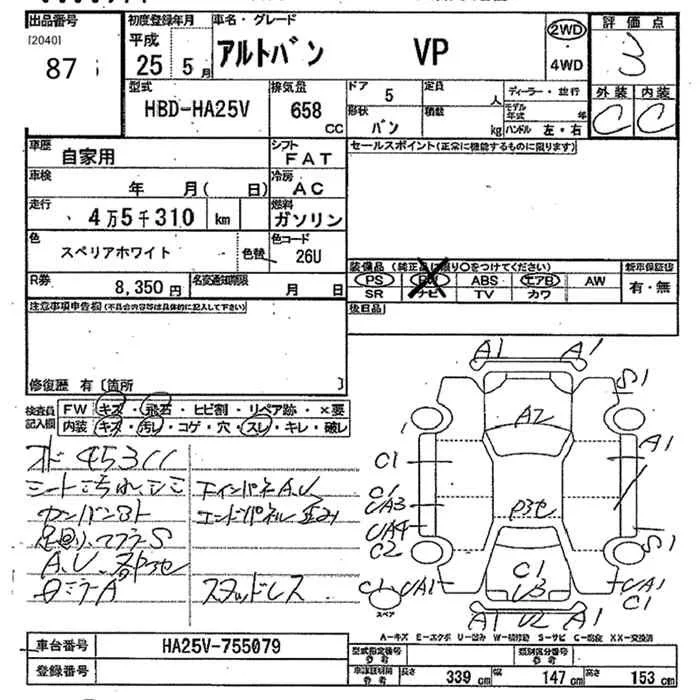 出品番号
[2040]
87
初度登録年月
平成
25 5月
車名・グレード
アルトバン VP
2WD
・
4WD
評価点
3
外装 内装
C C
型式
HBD-HA25V
排気量
658
CC
ドア
5
形状
バン
定員
人
積載
kg
ディーラー・並行
モデル年式 年
ハンドル 左・右
車歴
自家用
シフト
FAT
車検
年 月( 日)
冷房
AC
走行
4万5千310 km
燃料
ガソリン
色
スペリアホワイト
色替
色コード
26U
R券
8,350円
名変通知期限
月 日
セールスポイント(正常に機能するものに限ります)
装備品 (純正品に限り○をつけてください)
新車保証書
PS PW ABS エアB AW
SR ナビ TV カワ
有・無
後日品
注意事項申告欄(不具合内容等は具体的に記入して下さい)
修復歴 有〔箇所 〕
検査員記入欄
FW キズ・飛石・ヒビ割・リペア跡・×要
内装 キズ・汚れ・コゲ・穴・スレ・キレ・破レ
オド 45311
シート汚れシミ
下インパネA.U
エンドパネル歪み
スタッドレス
A1 A1
S1
A2
A1
C1
C1
UA3
UA4
C2
S1
C1
U3
C1
UA1
UA1
C1
スペア
A1 U2 A1
A-キズ E-エクボ U-凹み W-補修跡 S-サビ C-腐食 XX-交換済
車台番号
HA25V-755079
登録番号
型式指定番号
参考
類別区分番号
参考
車検証期間
参考
長さ 339 cm
幅 147 cm
高さ 153 cm